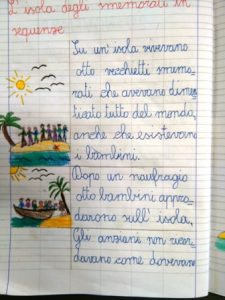 L'isola degli smemorati in
sequenze
Su un'isola vivevano
otto vecchietti smemo-
rati che avevano dimen-
ticato tutto del mondo,
anche che esistevano
i bambini.
Dopo un naufragio
otto bambini appro-
darono sull'isola.
Gli anziani non ricor-
davano come dovevano